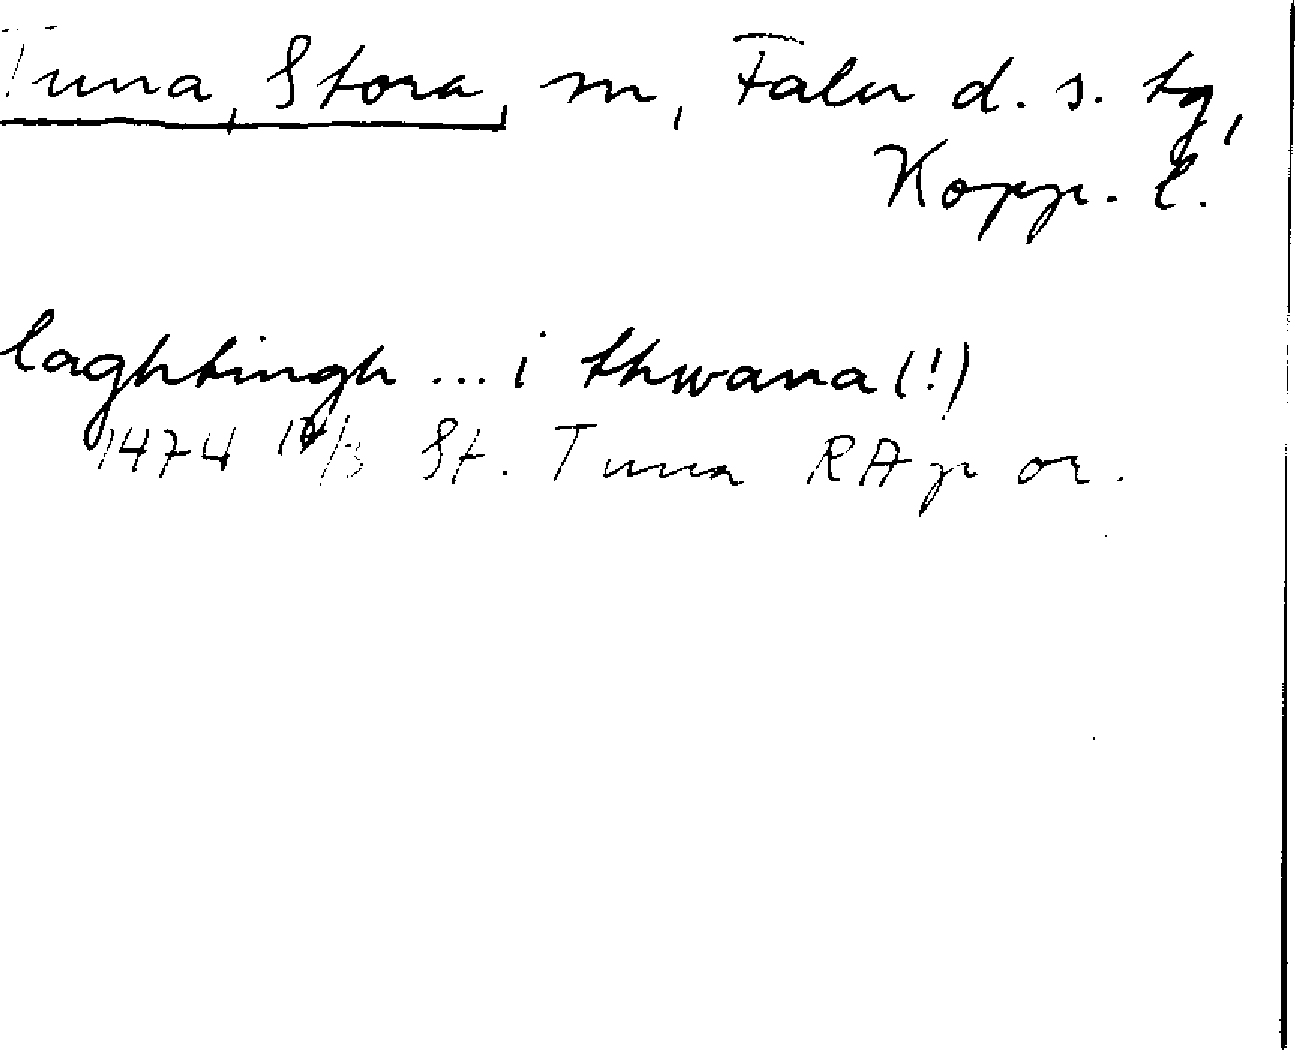 Tuna, Stora, sn, Falu d. s. tg,
Kopp. l.
laghtingh ... i thwana (!)
1474 /3 St. Tuna RAp or.